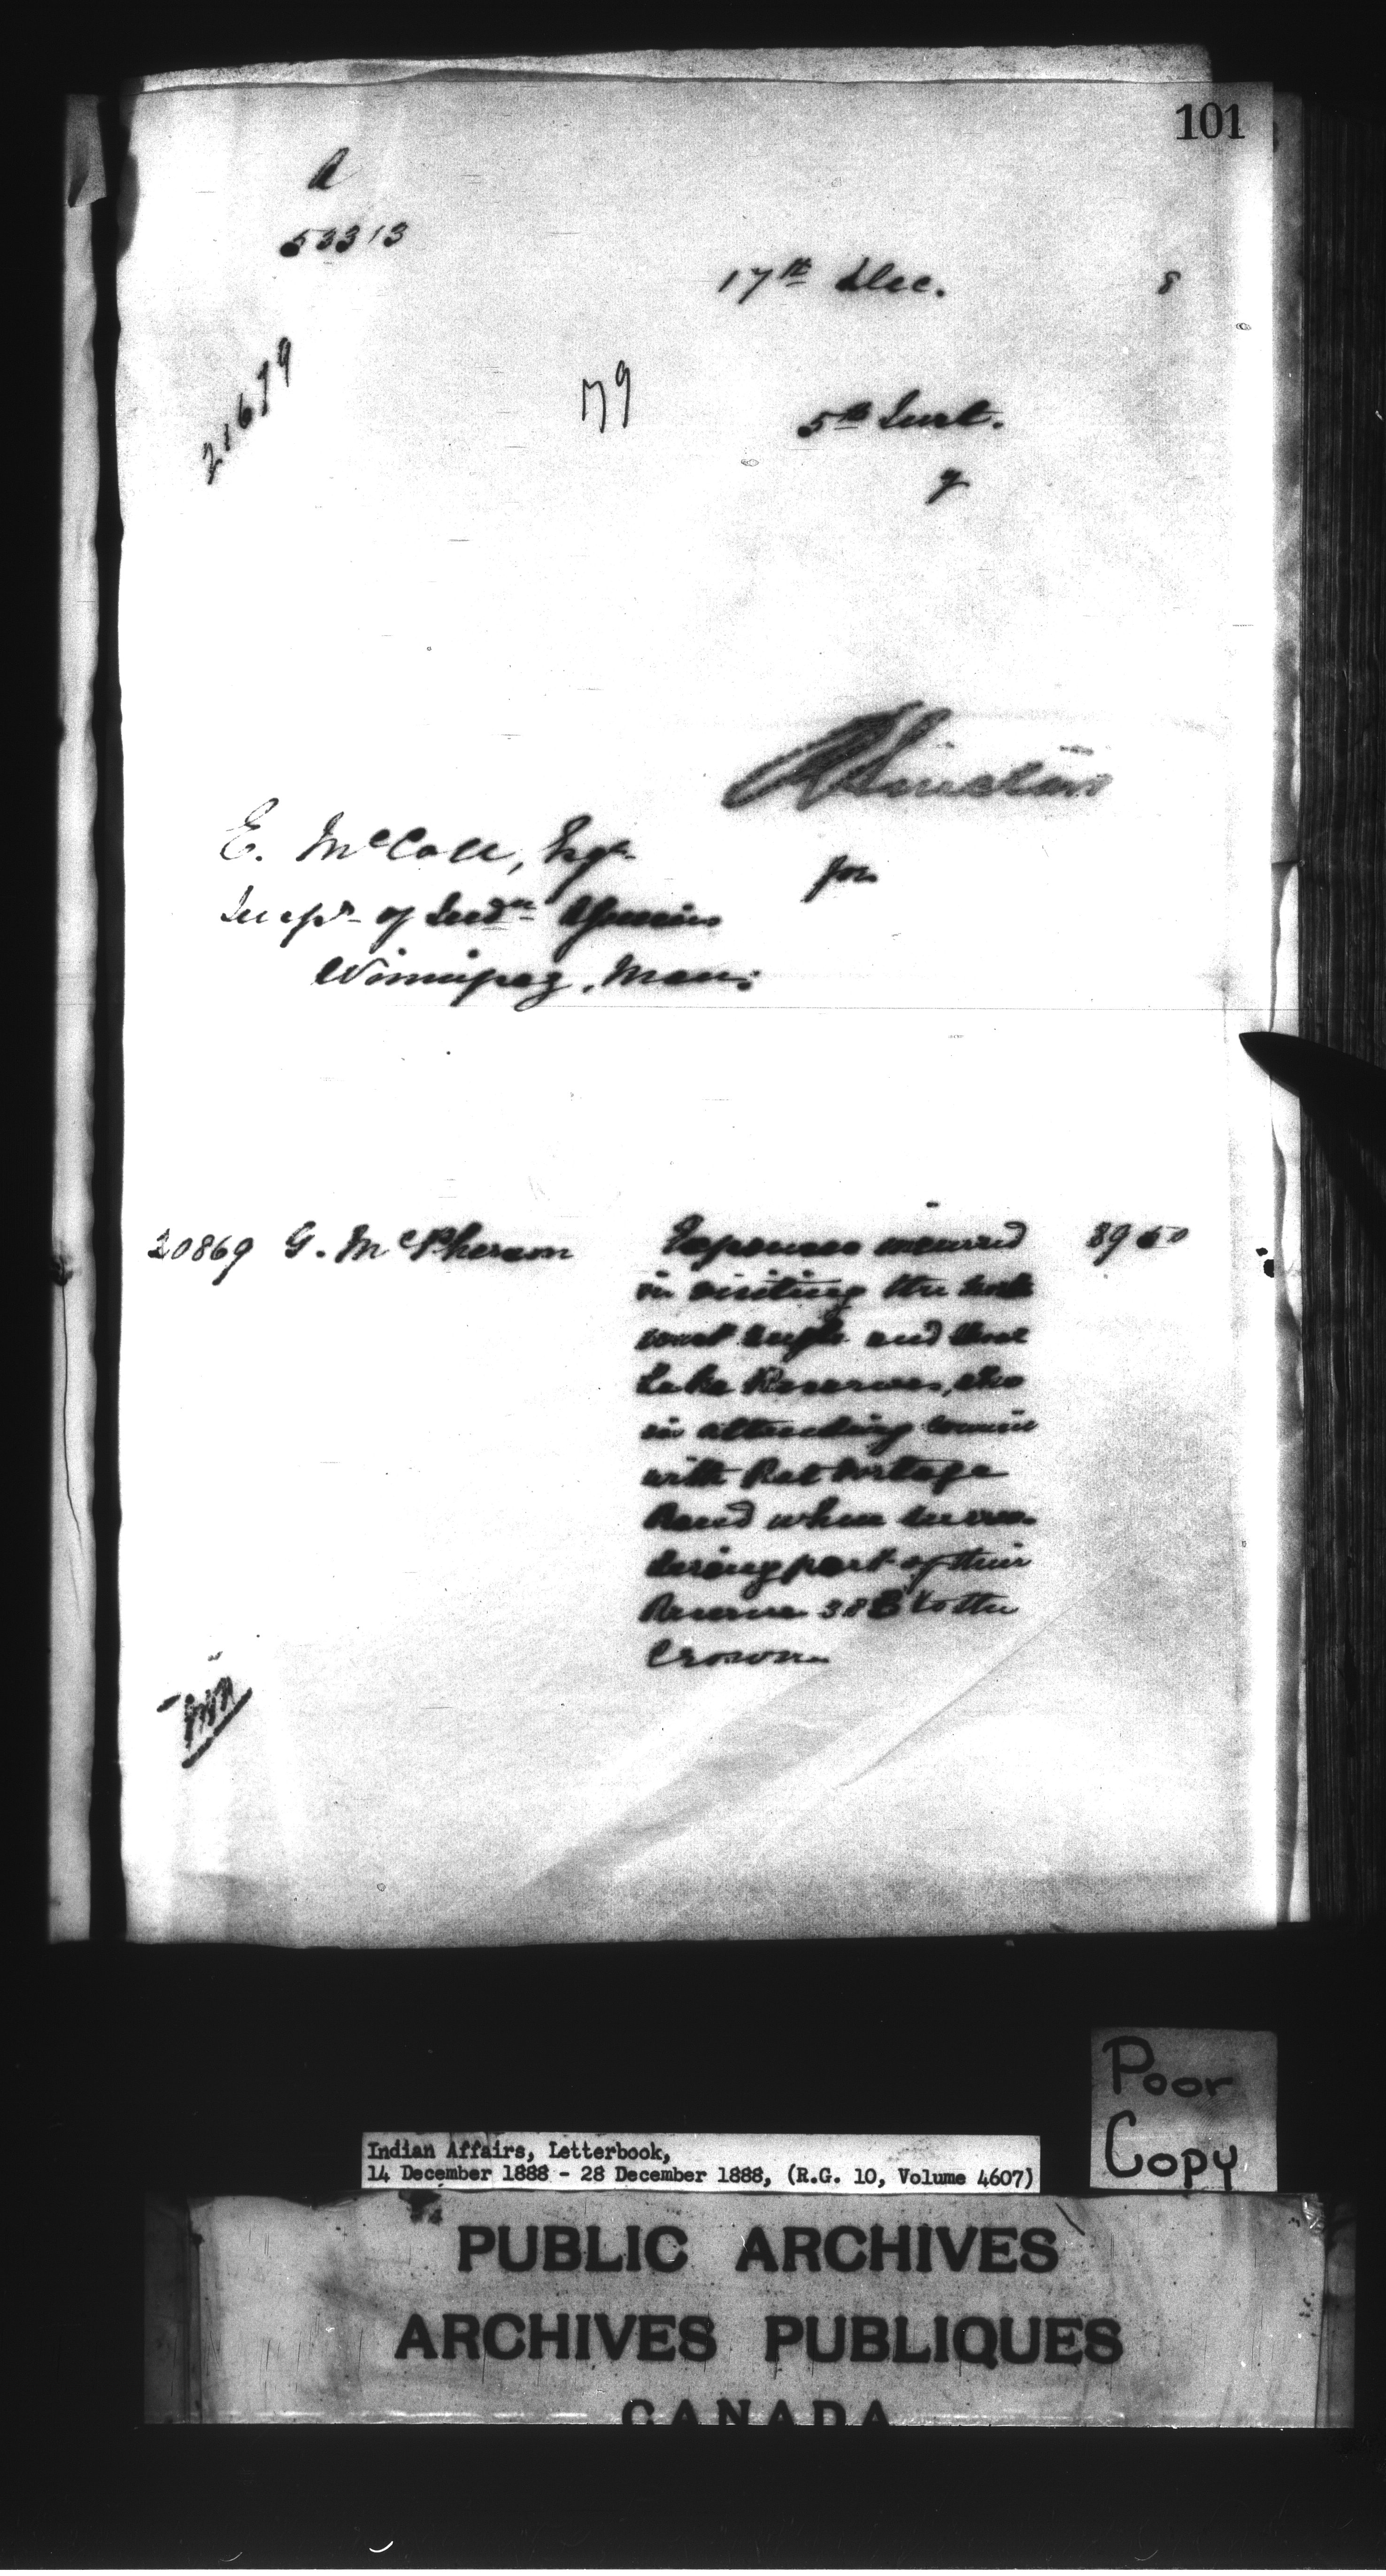 101
A
53313
17th Dec. 8
21679
79
5th Inst.
y
RSinclair
E. McColl, Esqr.
for
Inspr. of Indn Agencies
Winnipeg, Man:
20869 G. McPherson Expenses incurred 89 50
in visiting the north
west angle and Shoal
Lake Reserves, also
in attending council
with Rat Portage
Band when surren-
dering part of their
Reserve 38B to the
Crown
Poor
Copy
Indian Affairs, Letterbook,
14 December 1888 - 28 December 1888, (R.G. 10, Volume 4607)
PUBLIC ARCHIVES
ARCHIVES PUBLIQUES
CANADA